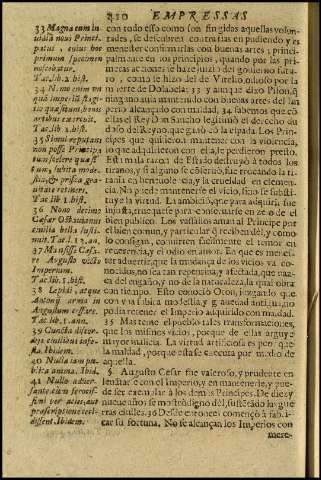 210 EMPRESSAS
33 Magna eum in-
vidia noui Princi-
patus, cuius hoc
primum specimen
noscebatur.
Tac. lib. 2. hist.
34 Nemo enim vn
quã imperiũ flagi-
tio quæsitum bonis
artibus exercuit.
Tac. lib. 1. hist.
35 Simul reputans
non posse Principa
tum scelere quæsi-
tum, subita modes-
tia, & prisca gra-
uitate retineri.
Tac. lib. 1. hist.
36 Nono decimo
Cæsar Octauianus
ciuilia bella susti-
nuit. Tac. l. 13. an.
Imperium.
Tac. lib. 1. hist.
38 Lepidi, atque
Antonij arma in
Augustum cessere.
Tac. lib. 1. ann.
39 Cuncta discor-
dijs ciuilibus fessa.
Ibidem.
40 Nulla iam pu-
blica arma. Ibid.
41 Nullo aduer-
sante, cum ferocis-
simi per acies, aut
proscriptione ceci-
dissent. Ibidem.
con todo esso como son fingidos aquellas volun-
tades, se descubren contrarias en pudiendo, y es
menester confirmarlas con buenas artes; princi-
palmente en los principios, quando por las pri-
meras acciones se haze juizio del gouierno futu-
ro, como se hizo del de Vitelio, odioso por la
muerte de Dolabela: 33 y aunque dixo Pison, q̃
ninguno auia mantenido con buenas artes del Im-
perio alcançado con maldad, 34 sabemos que cõ
ellas el Rey Don Sancho legitimò el derecho du-
doso del Reyno, que ganò cõ la espada. Los Prin-
cipes que quisieron mantener con la violencia,
lo que adquirieron con ella, se perdieron presto.
Esta mala razon de Estado destruyò à todos los
tiranos, y si alguno se conseruò, fue trocando la ti-
rania en beneuolencia, y la crueldad en clemen-
cia. No puede mantenerse el vicio, si no se substi-
tuye la virtud. La ambiciõ, que para adquirir fue
injusta, truequese para conseruarse en zelo del
bien publico. Los vassallos aman al Principe por
el bien comun, y particular q̃ reciben dèl, y como
lo consigan, conuierten facilmente el temor en
reuerencia, y el odio en amor. En que es menes-
ter aduertir, que la mudança de los vicios ya co-
nocidos, no sea tan repentina, y afectada, que naz-
ca del engaño, y no de la naturaleza, la qual obra
con tiempo. Esto conociò Oton, juzgando que
con vna subita modestia, y grauedad antigua, no
podia retener el Imperio adquirido con maldad.
35 Mas teme el pueblo tales transformaciones,
que los mismos vicios, porque de ellas arguye
mayor malicia. La virtud artificiosa es peor que
la maldad, porque esta se executa por medio de
aquella.
§. Augusto Cesar fue valeroso, y prudente en
leuantarse con el imperio, y en mantenerle, y pue-
de ser exemplar à los demas Principes. De diez y
nueue años se mostrò digno dèl, sustẽtado las gue-
rras ciuiles. 36 Desde entonces començò à fabri-
car su fortuna. No se alcançan los Imperios con
mere-